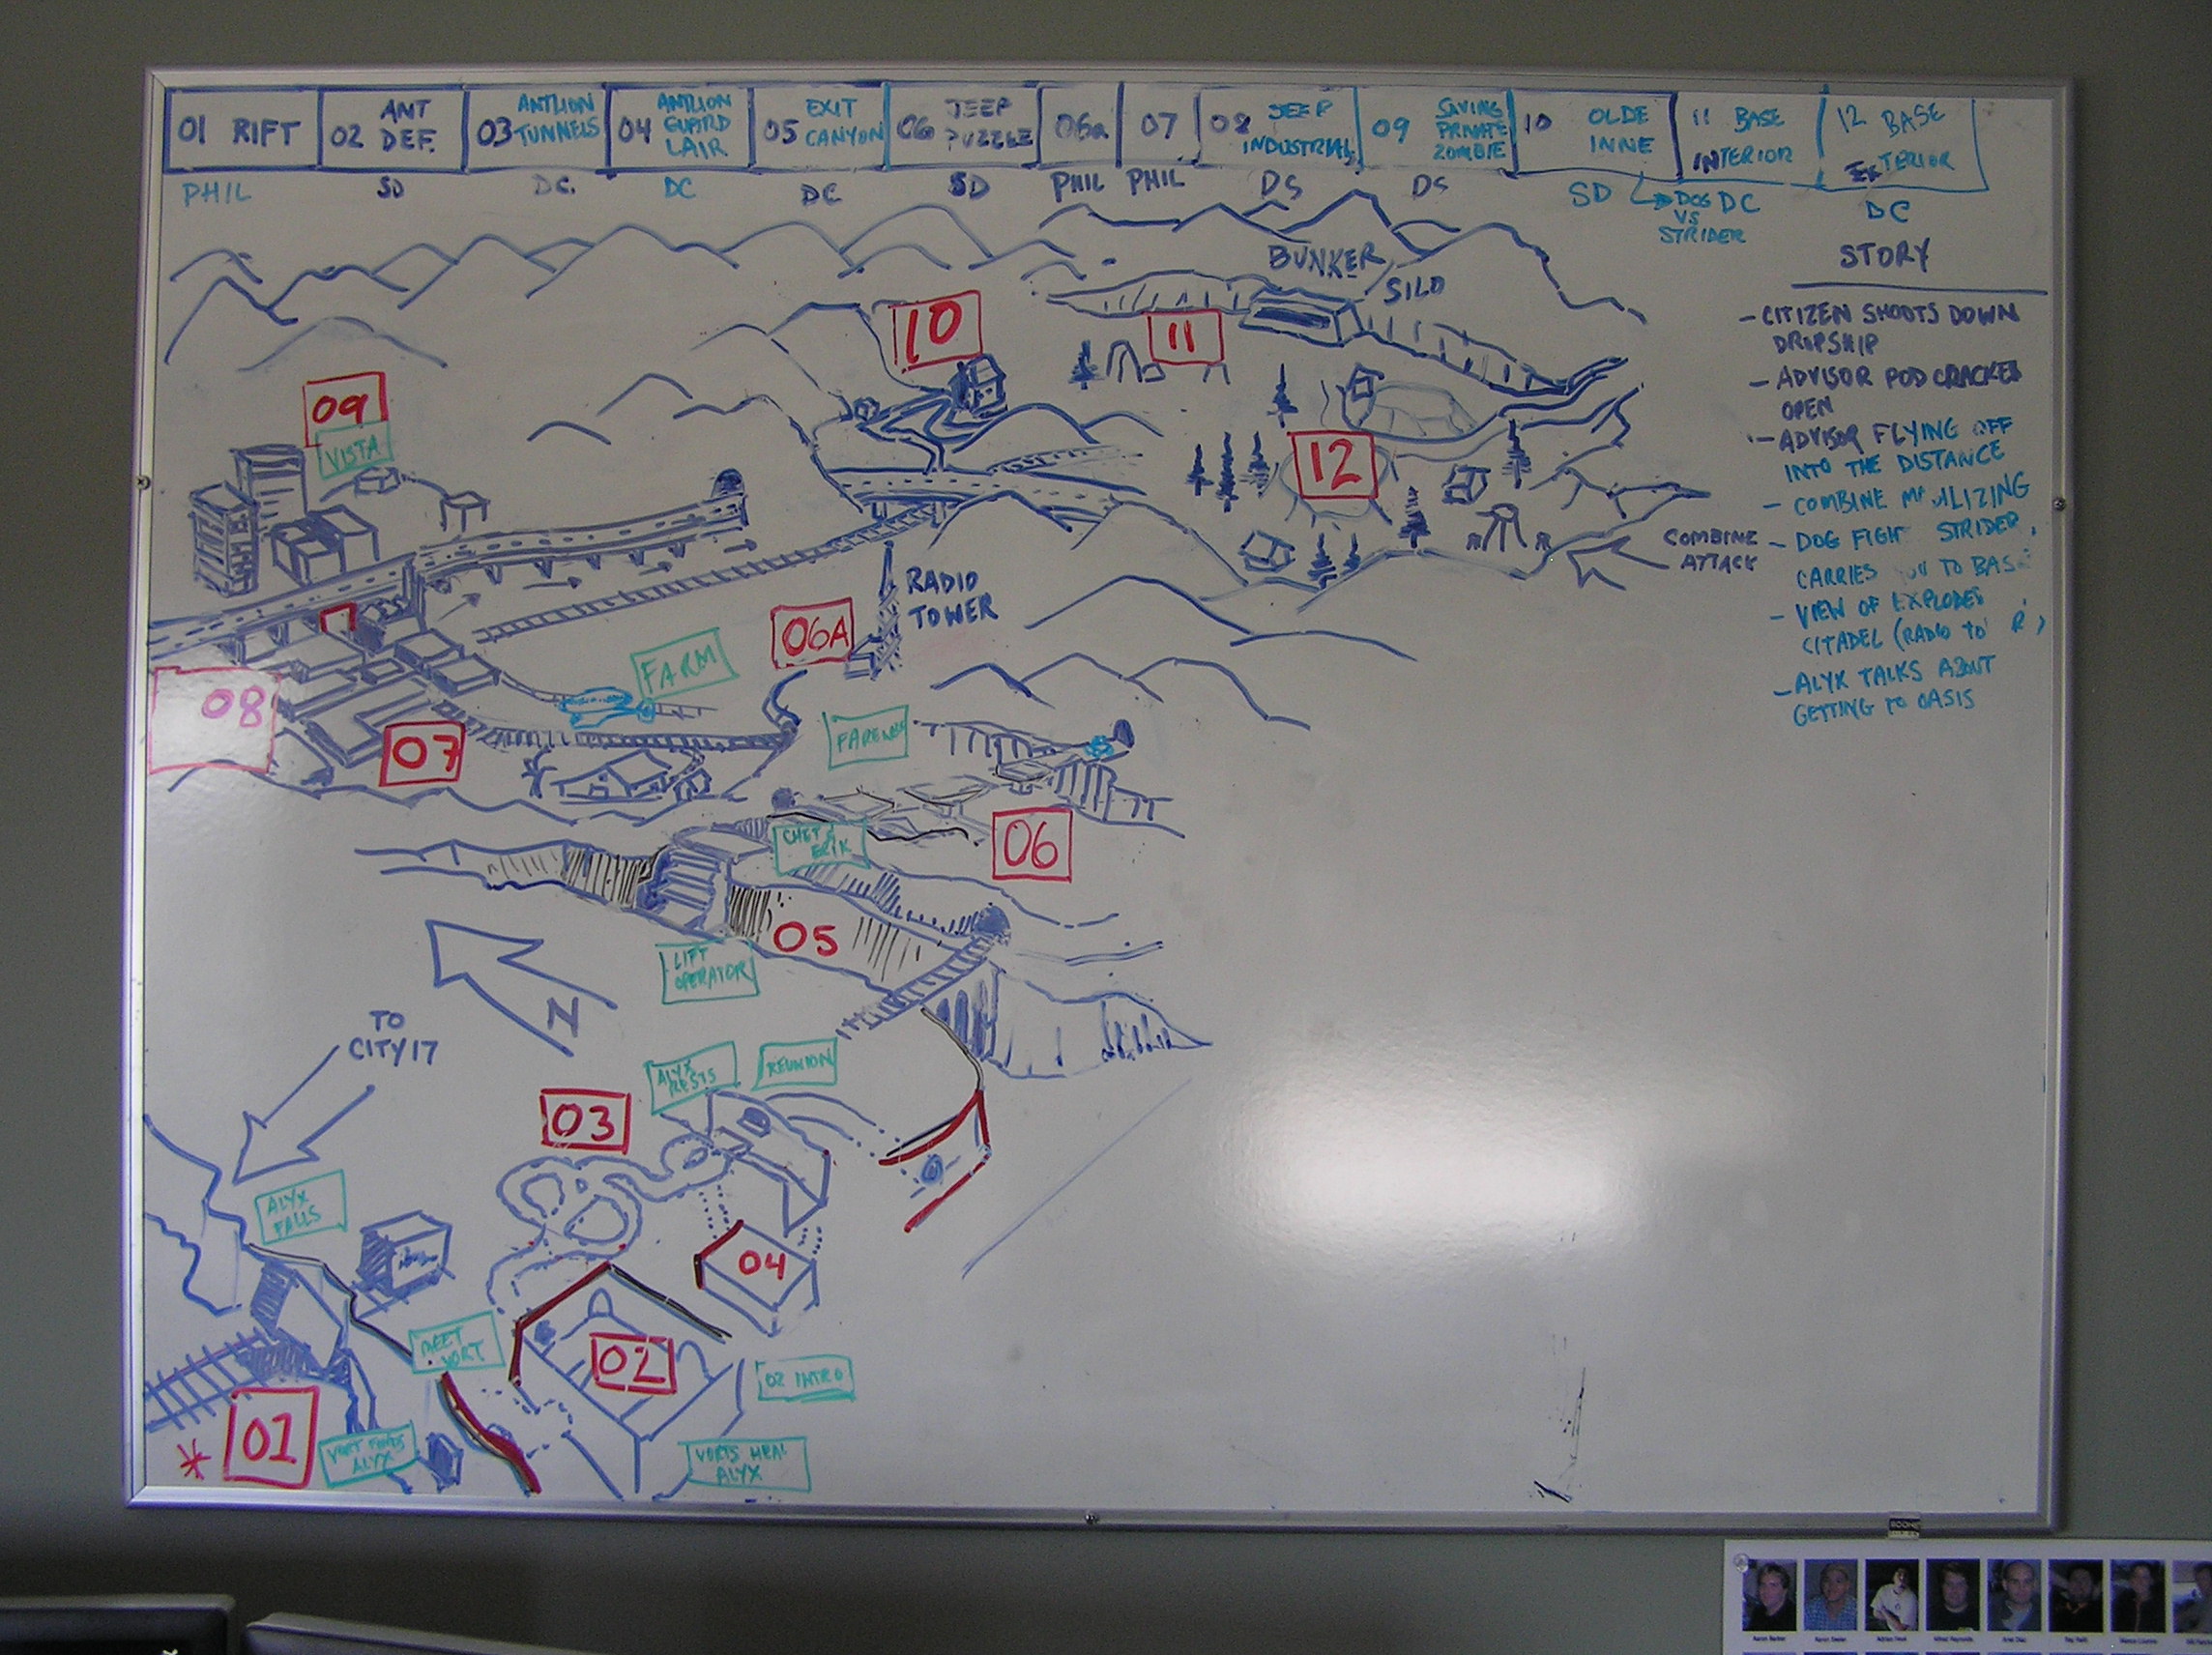 01 RIFT
02 ANT
DEF.
03 ANTLION
TUNNELS
04 ANTLION
GUARD
LAIR
05 EXIT
CANYON
06 JEEP
PUZZLE
06a
07
08 JEEP
INDUSTRIAL
09 SAVING
PRIVATE
ZOMBIE
10 OLDE
INNE
11 BASE
INTERIOR
12 BASE
EXTERIOR
PHIL
SD
DC.
DC
DC
SD
PHIL
PHIL
DS
DS
SD
DOG
VS
STRIDER
DC
DC
STORY
- CITIZEN SHOOTS DOWN
DROPSHIP
- ADVISOR POD CRACKED
OPEN
- ADVISOR FLYING OFF
INTO THE DISTANCE
- COMBINE
- DOG FIGHT STRIDER,
CARRIES TO BASE
- VIEW OF EXPLODED
CITADEL (RADIO
- ALYX TALKS ABOUT
GETTING TO OASIS
BUNKER
SILO
10
11
09
VISTA
12
COMBINE
ATTACK
RADIO
TOWER
06A
FARM
08
07
06
CHET &
ERIK
05
LIFT
OPERATOR
N
TO
CITY 17
ALYX
RESTS
REUNION
03
ALYX
FALLS
04
MEET
VORT
02
02 INTRO
* 01
VORT FINDS
ALYX
VORTS HEAL
ALYX